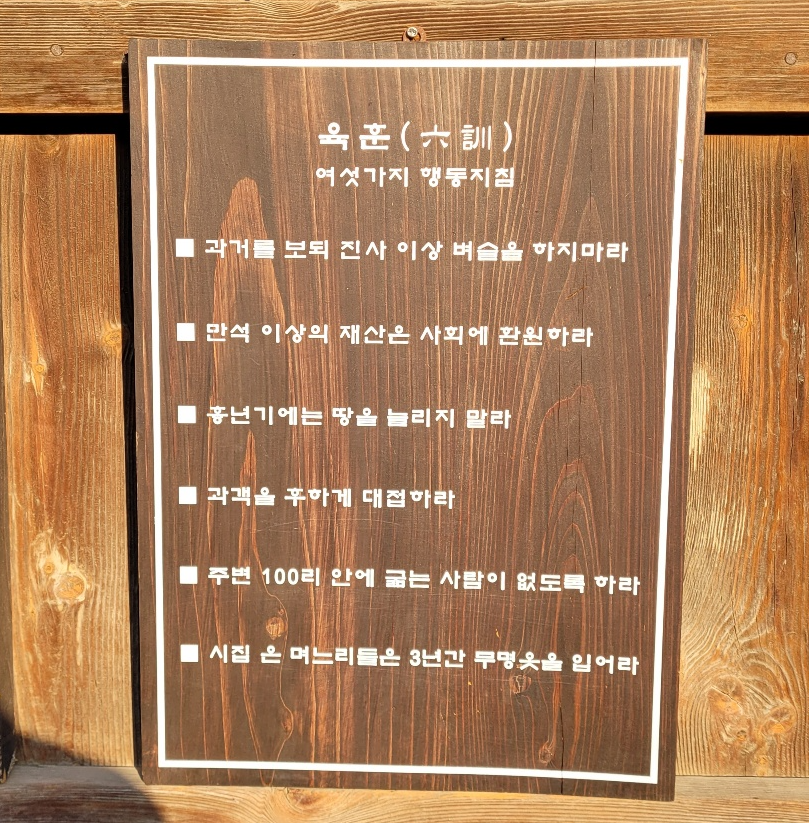 육훈(六訓)
여섯가지 행동지침
■ 과거를 보되 진사 이상 벼슬을 하지마라
■ 만석 이상의 재산은 사회에 환원하라
■ 흉년기에는 땅을 늘리지 말라
■ 과객을 후하게 대접하라
■ 주변 100리 안에 굶는 사람이 없도록 하라
■ 시집 온 며느리들은 3년간 무명옷을 입어라